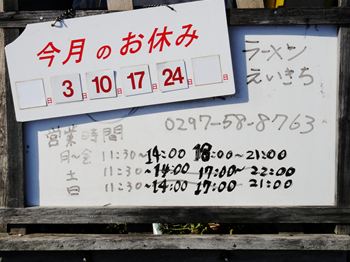 今月のお休み
3日 10日 17日 24日 日
ラーメン
えいきち
0297-58-8763
営業時間
月～金 11:30～14:00 18:00～21:00
土 11:30～14:00 17:00～22:00
日 11:30～14:00 17:00～21:00